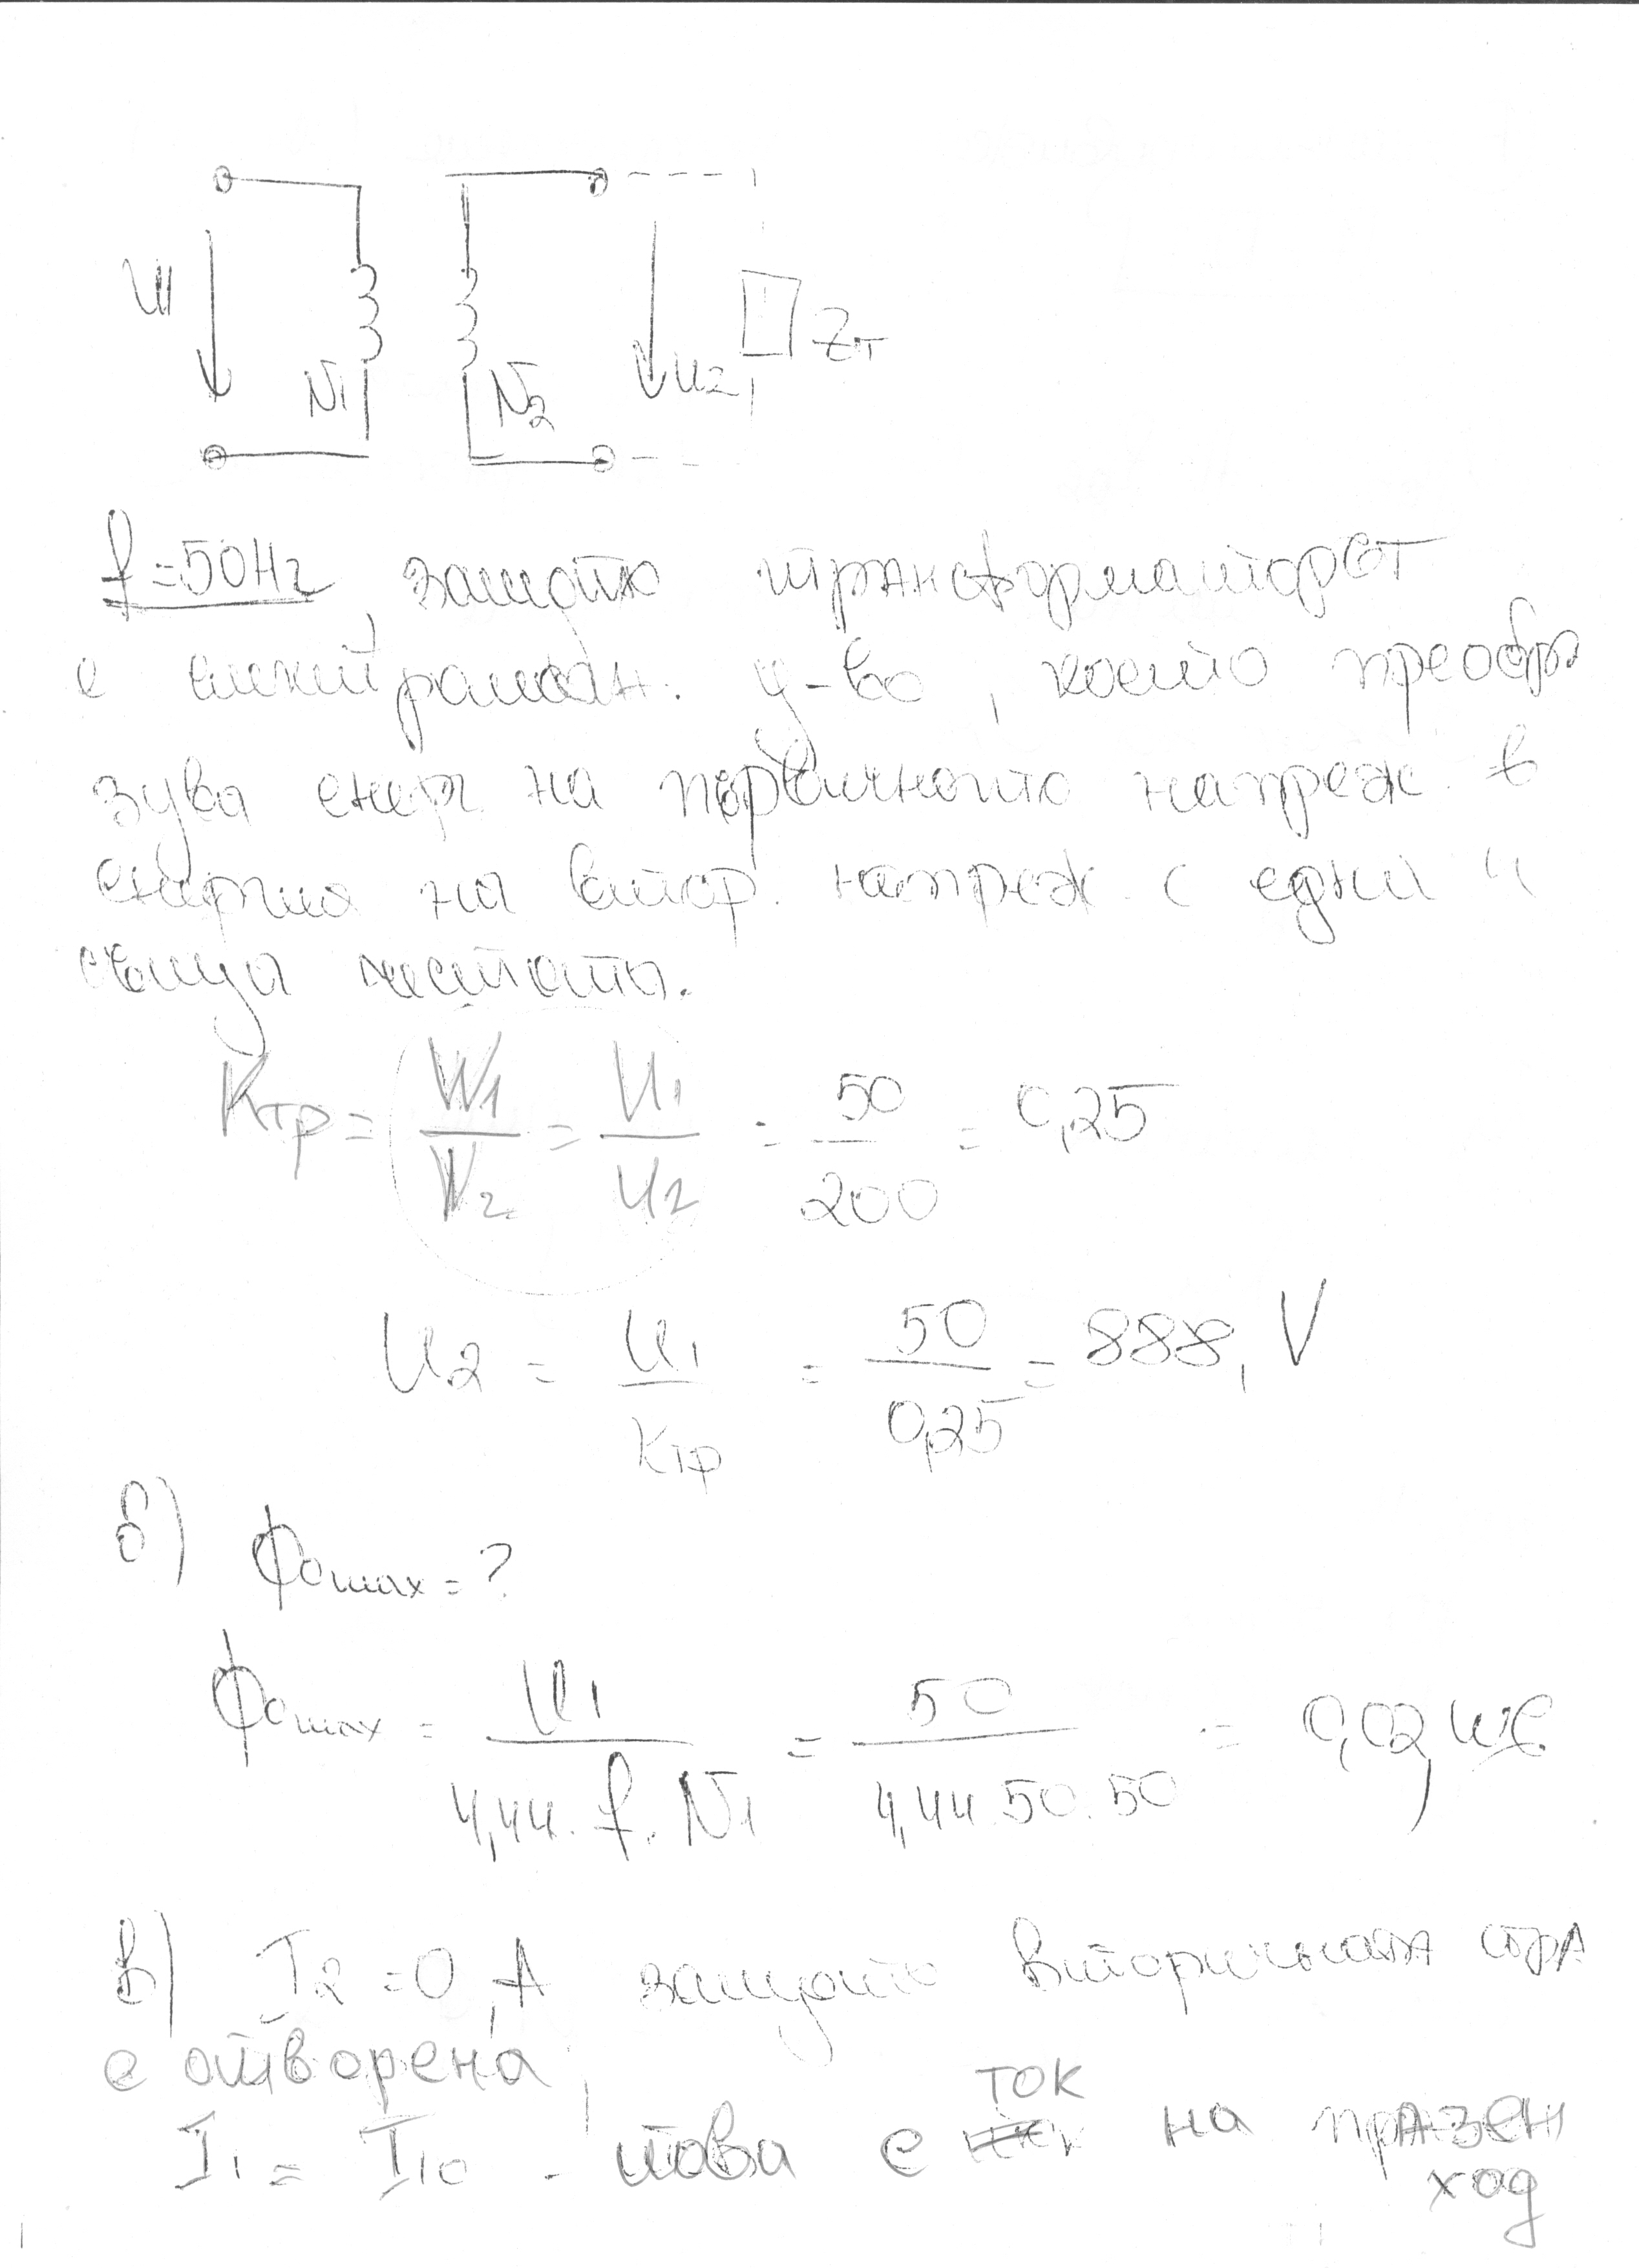 U1
N1
N2
U2
Zт
f=50Hz, защото трансформаторът
е електромагн. у-во, което преобра
зува енерг. на първичното напреж. в
енергия на втор. напреж. с една и
съща честота.
Kтр = W1/W2 = U1/U2 = 50/200 = 0,25
U2 = U1/Kтр = 50/0,25 = 888, V
б) Фоmax = ?
Фоmax = U1/4,44. f. N1 = 50/4,44.50.50 = 0,02, Wb
в) I2 = 0, A защото вторичната стра
е отворена,
I1 = I10 - това е ток на празен
ход